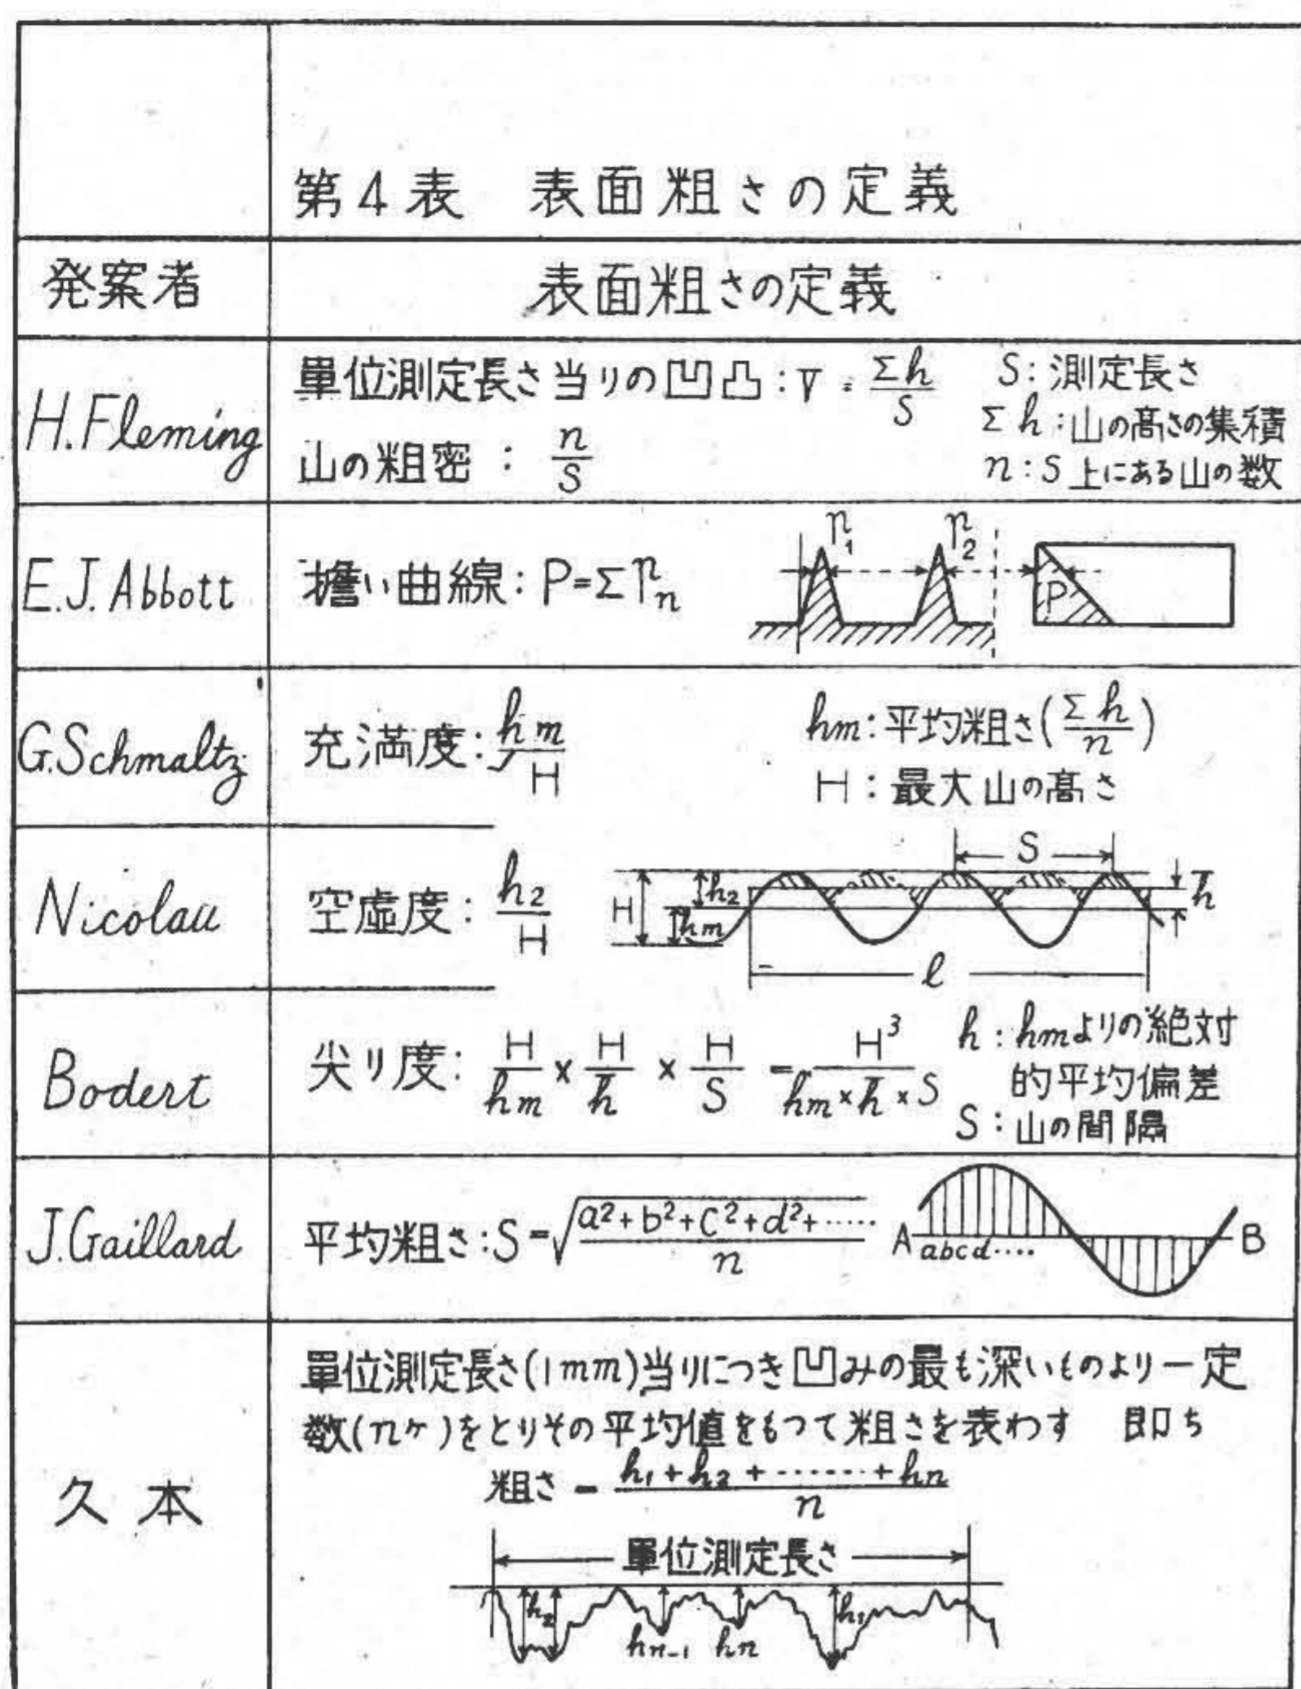 第4表 表面粗さの定義
発案者 表面粗さの定義
H.Fleming
單位測定長さ当りの凹凸:∇=Σh/S
山の粗密:n/S
S:測定長さ
Σh:山の高さの集積
n:S上にある山の数
E.J.Abbott
擔い曲線:P=Σpn
p1 p2 P
G.Schmaltz
充満度:hm/H
hm:平均粗さ(Σh/n)
H:最大山の高さ
Nicolau
空虚度:h2/H
S
H h2 hm h̄
l
Bodert
尖り度:H/hm×H/h̄×H/S=H³/hm×h̄×S
h:hmよりの絶対
的平均偏差
S:山の間隔
J.Gaillard
平均粗さ:S=√a²+b²+c²+d²+‥‥‥/n
A abcd‥‥ B
久本
單位測定長さ(1mm)当りにつき凹みの最も深いものより一定
数(nケ)をとりその平均値をもつて粗さを表わす 即ち
粗さ=h1+h2+‥‥‥+hn/n
單位測定長さ
h2 hn-1 hn h1